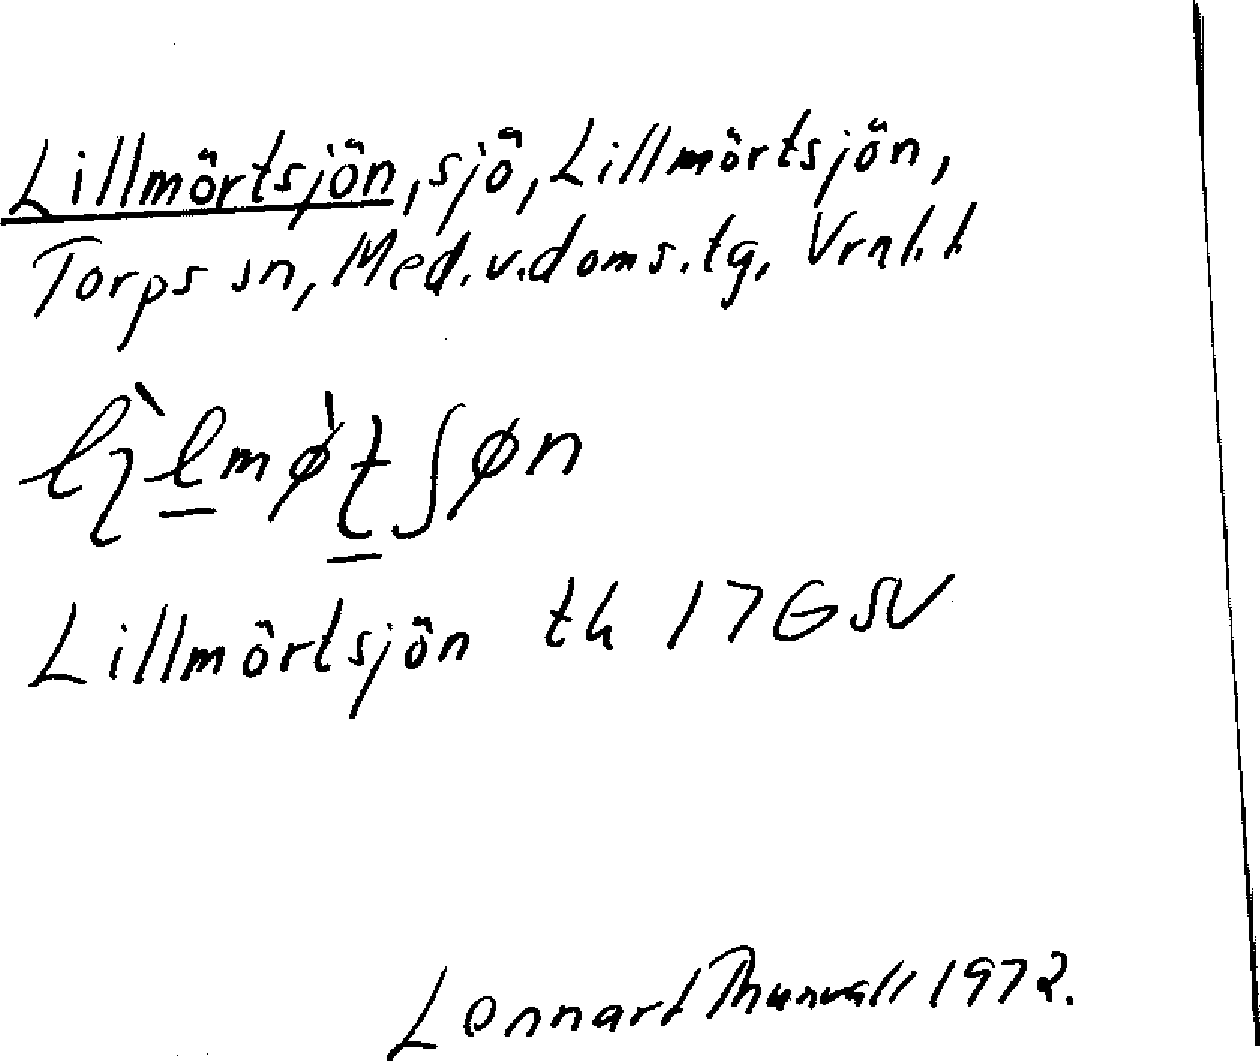 Lillmörtsjön, sjö, Lillmörtsjön,
Torps sn, Med.v.doms.tg, Vrnl.l.
Lillmörtsjön tk 17G SV
Lennart Thunvall 1972.